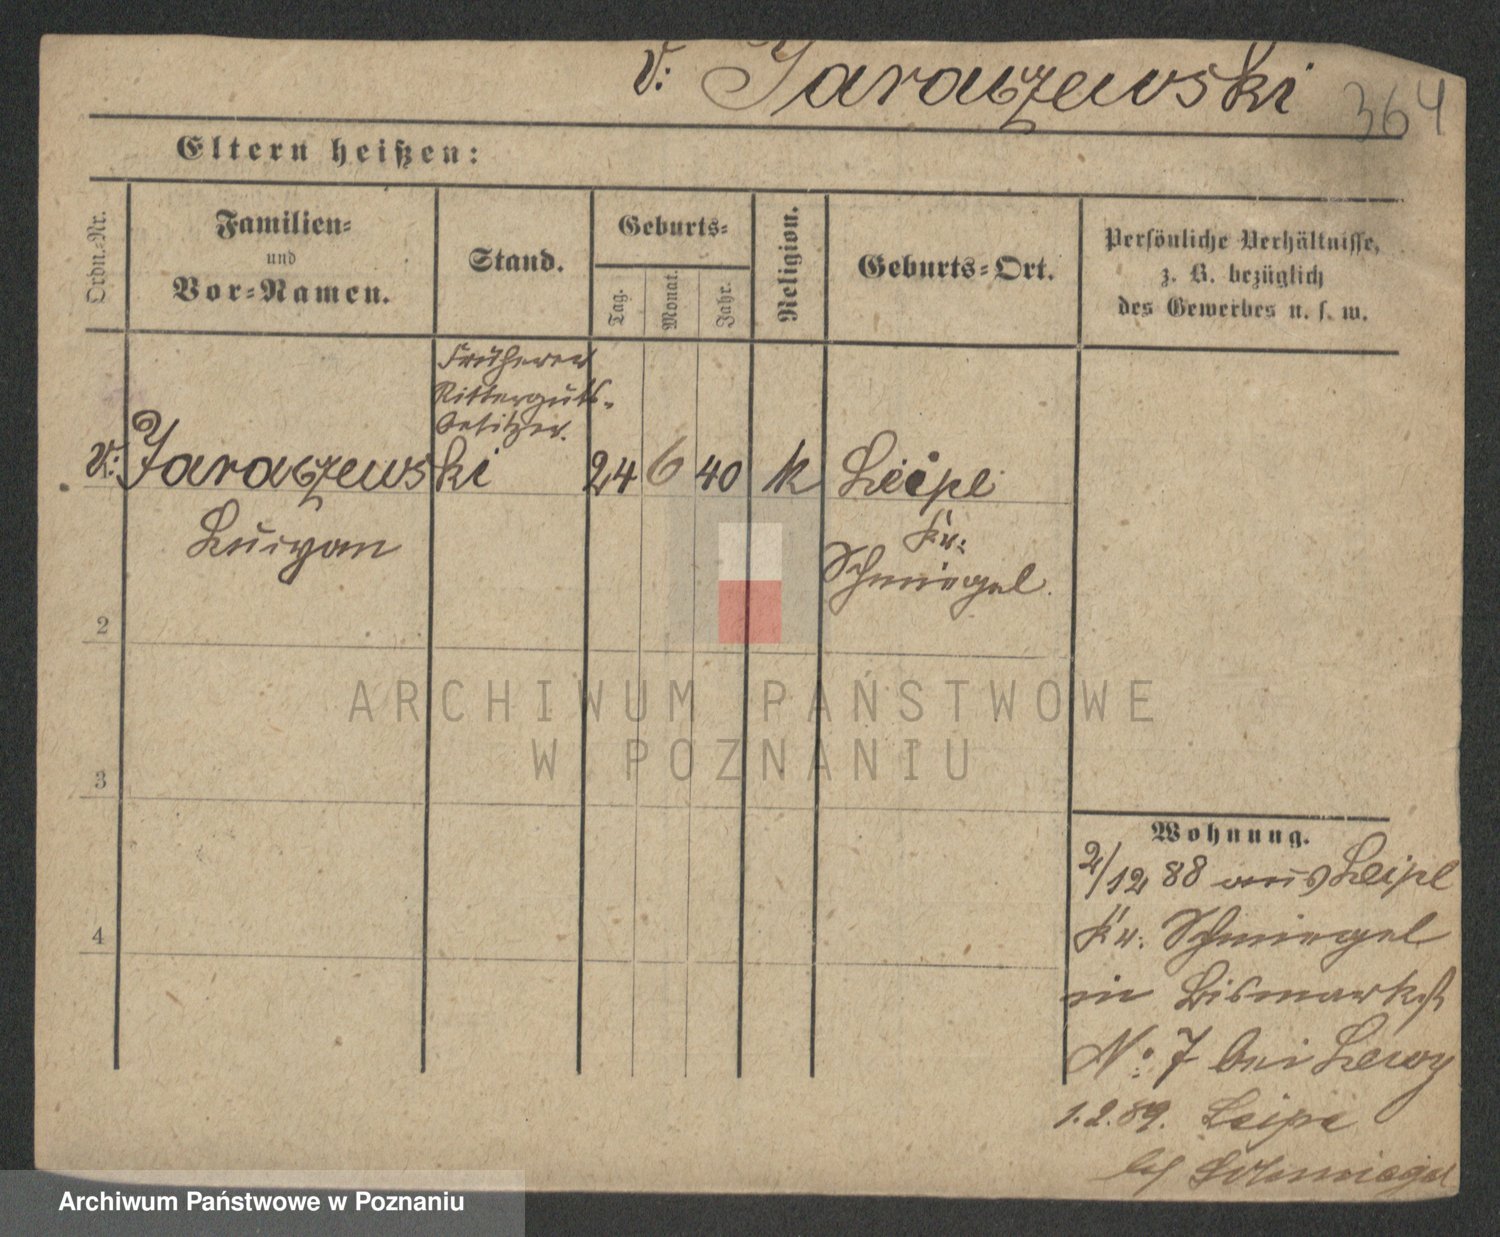 v: Jaraczewski 364
Eltern heißen:
Ordn.-Nr.
Familien-
und
Vor-Namen.
Stand.
Geburts-
Tag.
Monat.
Jahr.
Religion.
Geburts-Ort.
Persönliche Verhältnisse,
z. B. bezüglich
des Gewerbes u. s. w.
früherer
Ritterguts-
besitzer.
v: Jaraczewski 24 6 40 k Leipe
Kr:
Schmiegel.
2
3
4
Wohnung.
2/12 88 aus Leipe
Kr. Schmiegel
in Bismarkst
No: 7 bei Lewy
1.2.89. Leipe
bei Schmiegel
ARCHIWUM PAŃSTWOWE
W POZNANIU
Archiwum Państwowe w Poznaniu